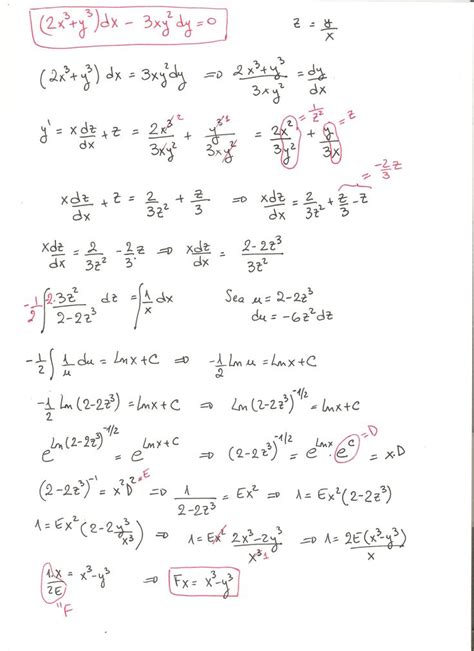 (2x³+y³)dx - 3xy²dy = 0    z = y/x
(2x³+y³)dx = 3xy²dy ⇒ (2x³+y³)/(3xy²) = dy/dx
y' = x dz/dx + z = 2x³/(3xy²) + y³/(3xy²) = 2x²/(3y²) + y/(3x)    = 1/z²    = z
x dz/dx + z = 2/(3z²) + z/3 ⇒ x dz/dx = 2/(3z²) + z/3 - z    = -2/3 z
x dz/dx = 2/(3z²) - 2/3 z ⇒ x dz/dx = (2-2z³)/(3z²)
-1/2 ∫ -2·3z²/(2-2z³) dz = ∫ 1/x dx    Sea u = 2-2z³
du = -6z²dz
-1/2 ∫ 1/u du = lnx + C ⇒ -1/2 ln u = lnx + C
-1/2 ln(2-2z³) = lnx + C ⇒ ln(2-2z³)^(-1/2) = lnx + C
e^(ln(2-2z³)^(-1/2)) = e^(lnx+C) ⇒ (2-2z³)^(-1/2) = e^(lnx) · e^C = x·D    = D
(2-2z³)^(-1) = x²D² ⇒ 1/(2-2z³) = Ex² ⇒ 1 = Ex²(2-2z³)    = E
1 = Ex²(2-2y³/x³) ⇒ 1 = Ex² (2x³-2y³)/x³ ⇒ 1 = 2E(x³-y³)/x    1
1·x/2E = x³-y³ ⇒ Fx = x³-y³
"F